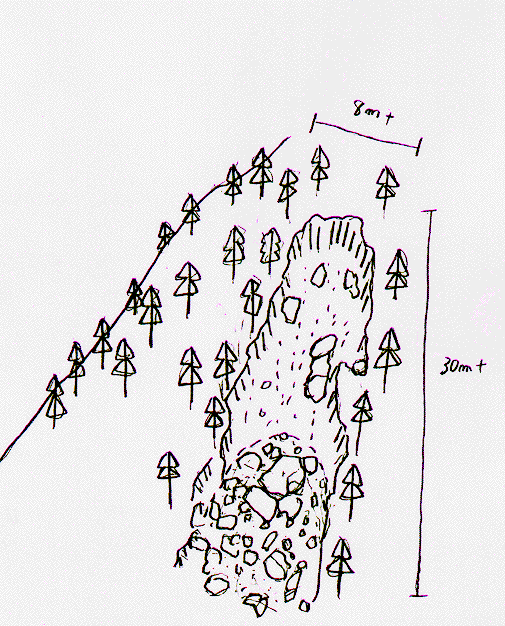 8m+
30m+